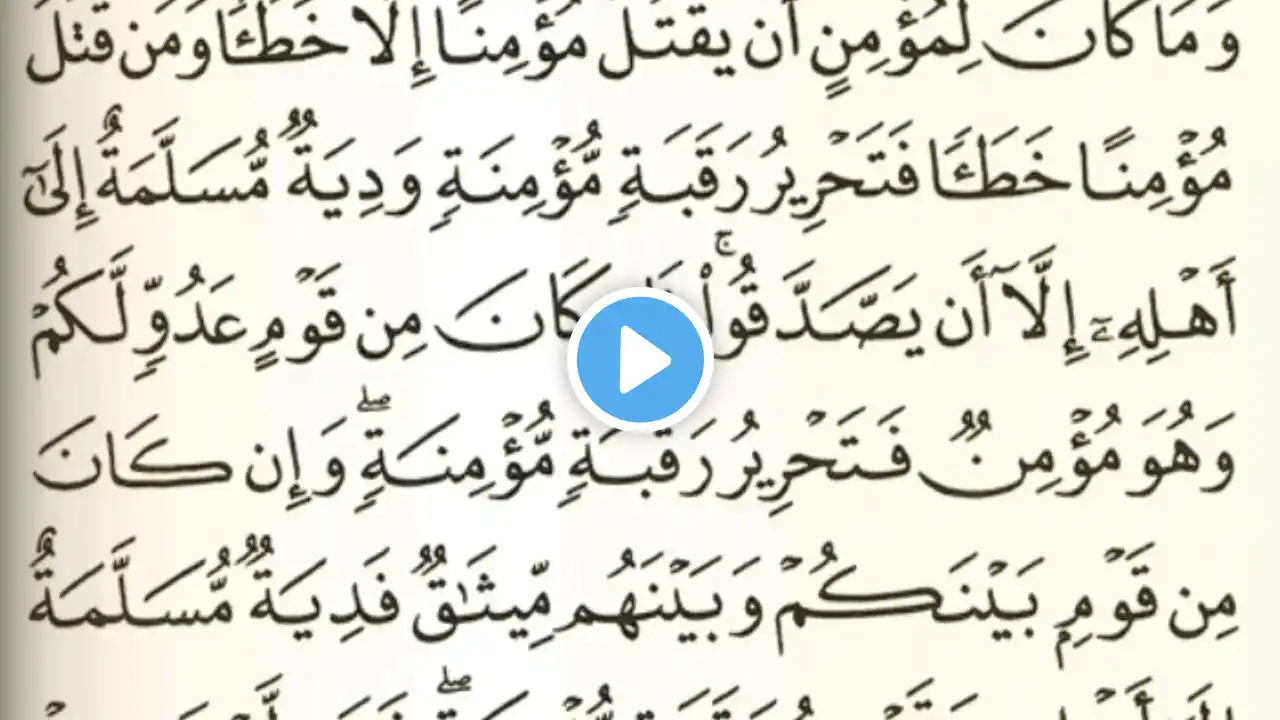 وَمَا كَانَ لِمُؤْمِنٍ أَن يَقْتُلَ مُؤْمِنًا إِلَّا خَطَـًٔا وَمَن قَتَلَ
مُؤْمِنًا خَطَـًٔا فَتَحْرِيرُ رَقَبَةٍ مُّؤْمِنَةٍ وَدِيَةٌ مُّسَلَّمَةٌ إِلَىٰٓ
أَهْلِهِۦٓ إِلَّآ أَن يَصَّدَّقُوا۟ ۚ كَانَ مِن قَوْمٍ عَدُوٍّ لَّكُمْ
وَهُوَ مُؤْمِنٌ فَتَحْرِيرُ رَقَبَةٍ مُّؤْمِنَةٍ ۖ وَإِن كَانَ
مِن قَوْمٍۭ بَيْنَكُمْ وَبَيْنَهُم مِّيثَٰقٌ فَدِيَةٌ مُّسَلَّمَةٌ